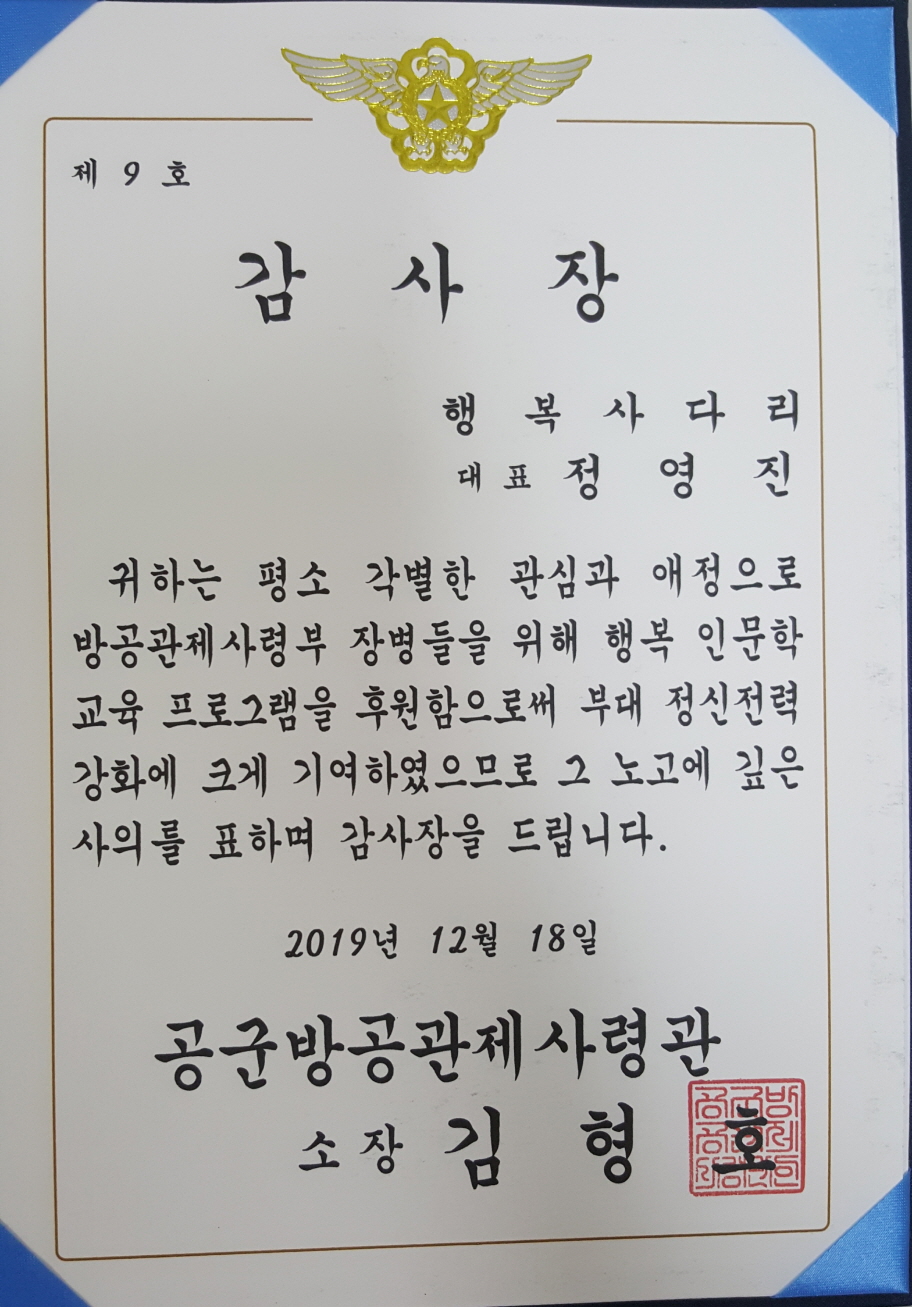 제 9 호
감 사 장
행 복 사 다 리
대 표 정 영 진
귀하는 평소 각별한 관심과 애정으로
방공관제사령부 장병들을 위해 행복 인문학
교육 프로그램을 후원함으로써 부대 정신전력
강화에 크게 기여하였으므로 그 노고에 깊은
사의를 표하며 감사장을 드립니다.
2019년 12월 18일
공군방공관제사령관
소 장 김 형 호